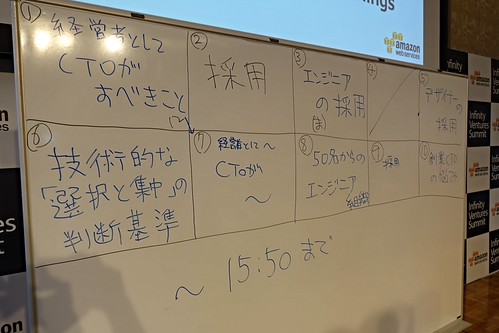 ings
amazon
webservices
①
経営者として
CTOが
すべきこと
②
採用
③
エンジニア
の採用
④
⑤
デザイナーの
採用
⑥
技術的な
「選択と集中」の
判断基準
⑦
経営者として〜
CTOが
〜
⑧
50名からの
エンジニア
組織
⑨
採用
⑩
創業CTO
の悩み
〜 15:50 まで
Infinity
Ventures
Summit
amazon
webservices
Infinity
Ventures
Summit
amazon